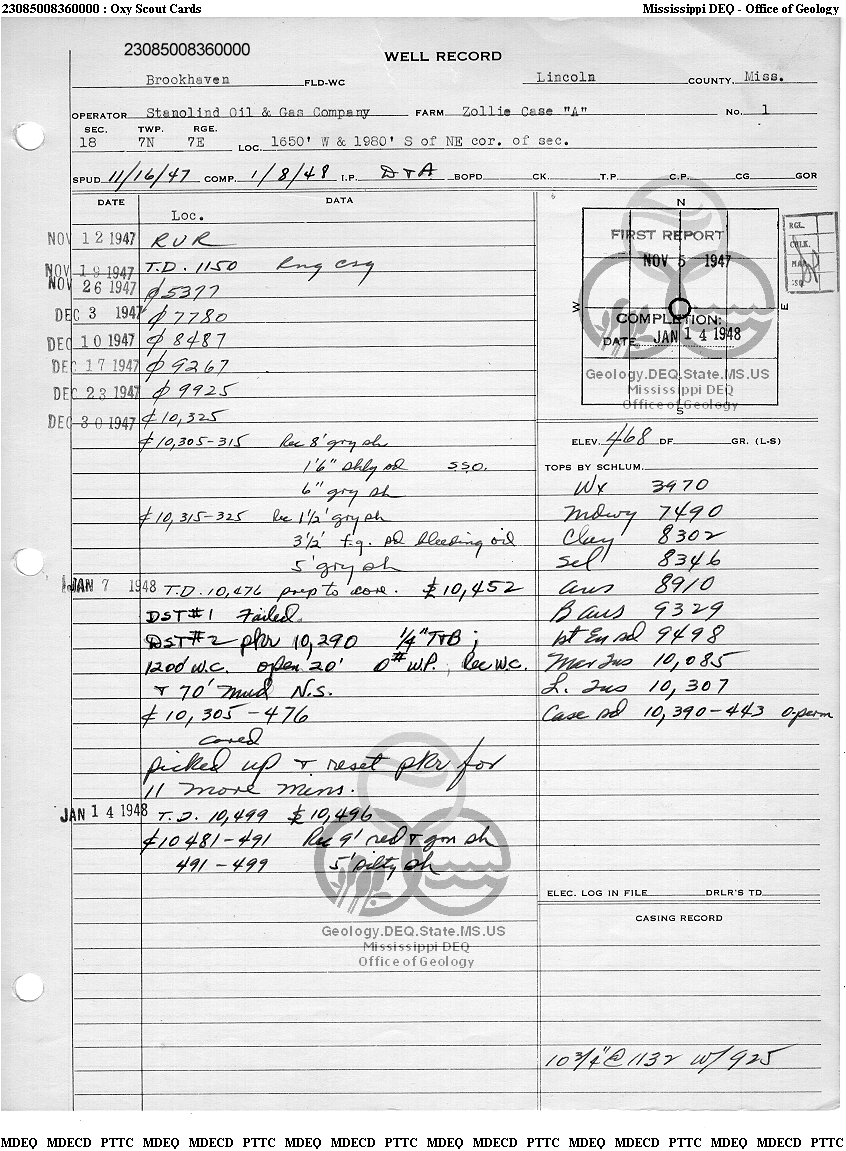 23085008360000 : Oxy Scout Cards Mississippi DEQ - Office of Geology
23085008360000
WELL RECORD
Brookhaven FLD-WC Lincoln COUNTY, Miss.
OPERATOR Stanolind Oil & Gas Company FARM Zollie Case "A" No. 1
SEC. TWP. RGE.
18 7N 7E LOC. 1650' W & 1980' S of NE cor. of sec.
SPUD 11/16/47 COMP. 1/8/48 I.P. D+A BOPD CK. T.P. C.P. CG GOR
DATE DATA
Loc.
NOV 12 1947 RUR
NOV 19 1947 T.D. 1150 Rng Csg
NOV 26 1947 ϕ 5377
DEC 3 1947 ϕ 7780
DEC 10 1947 ϕ 8487
DEC 17 1947 ϕ 9267
DEC 23 1947 ϕ 9925
DEC 30 1947 ¢ 10,325
¢ 10,305-315 Rec 8' gry sh
1'6" shly sd s.s.o.
6" gry sh
¢ 10,315-325 Rec 1½' gry sh
3½' f.g. sd bleeding oil
5' gry sh
JAN 7 1948 T.D. 10,476 prep to core. 10,452
DST #1 Failed.
DST #2 pkr 10,290 ¼" T+B ;
1200' W.C. open 20' 0# W.P., Rec W.C.
+ 70' Mud N.S.
¢ 10,305-476
cored
picked up + reset pkr for
11 more mins.
JAN 14 1948 T.D. 10,499 10,496
¢ 10 481-491 Rec 9' red + grn sh
491-499 5' silty sh
N
W
E
S
FIRST REPORT
NOV 5 1947
COMPLETION:
DATE JAN 14 1948
RGL.
CHK.
MAP
Geology.DEQ.State.MS.US
Mississippi DEQ
Office of Geology
ELEV. 468 DF GR. (L-S)
TOPS BY SCHLUM.
Wx 3970
Mdwy 7490
Clay 8302
Sel 8346
Aus 8910
B Aus 9329
1st Eu sd 9498
Mar Tus 10,085
L. Tus 10,307
Case sd 10,390-443 0-perm
ELEC. LOG IN FILE DRLR'S TD
CASING RECORD
10¾" @ 1132 W/925
Geology.DEQ.State.MS.US
Mississippi DEQ
Office of Geology
MDEQ MDECD PTTC MDEQ MDECD PTTC MDEQ MDECD PTTC MDEQ MDECD PTTC MDEQ MDECD PTTC MDEQ MDECD PTTC